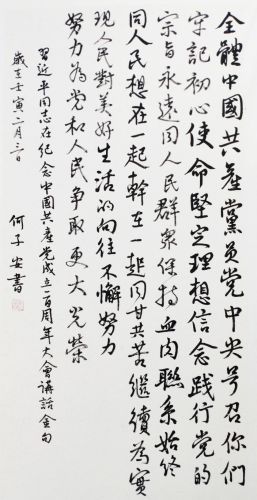 全體中國共產黨員党中央号召你們
牢記初心使命堅定理想信念践行党的
宗旨永遠同人民群衆保持血肉聯系始終
同人民想在一起幹在一起同甘共苦继續為實
現人民對美好生活的向往不懈努力
努力為党和人民争取更大光榮
習近平同志在紀念中國共產党成立一百周年大會講話金句
歲在壬寅二月三日 何子安書